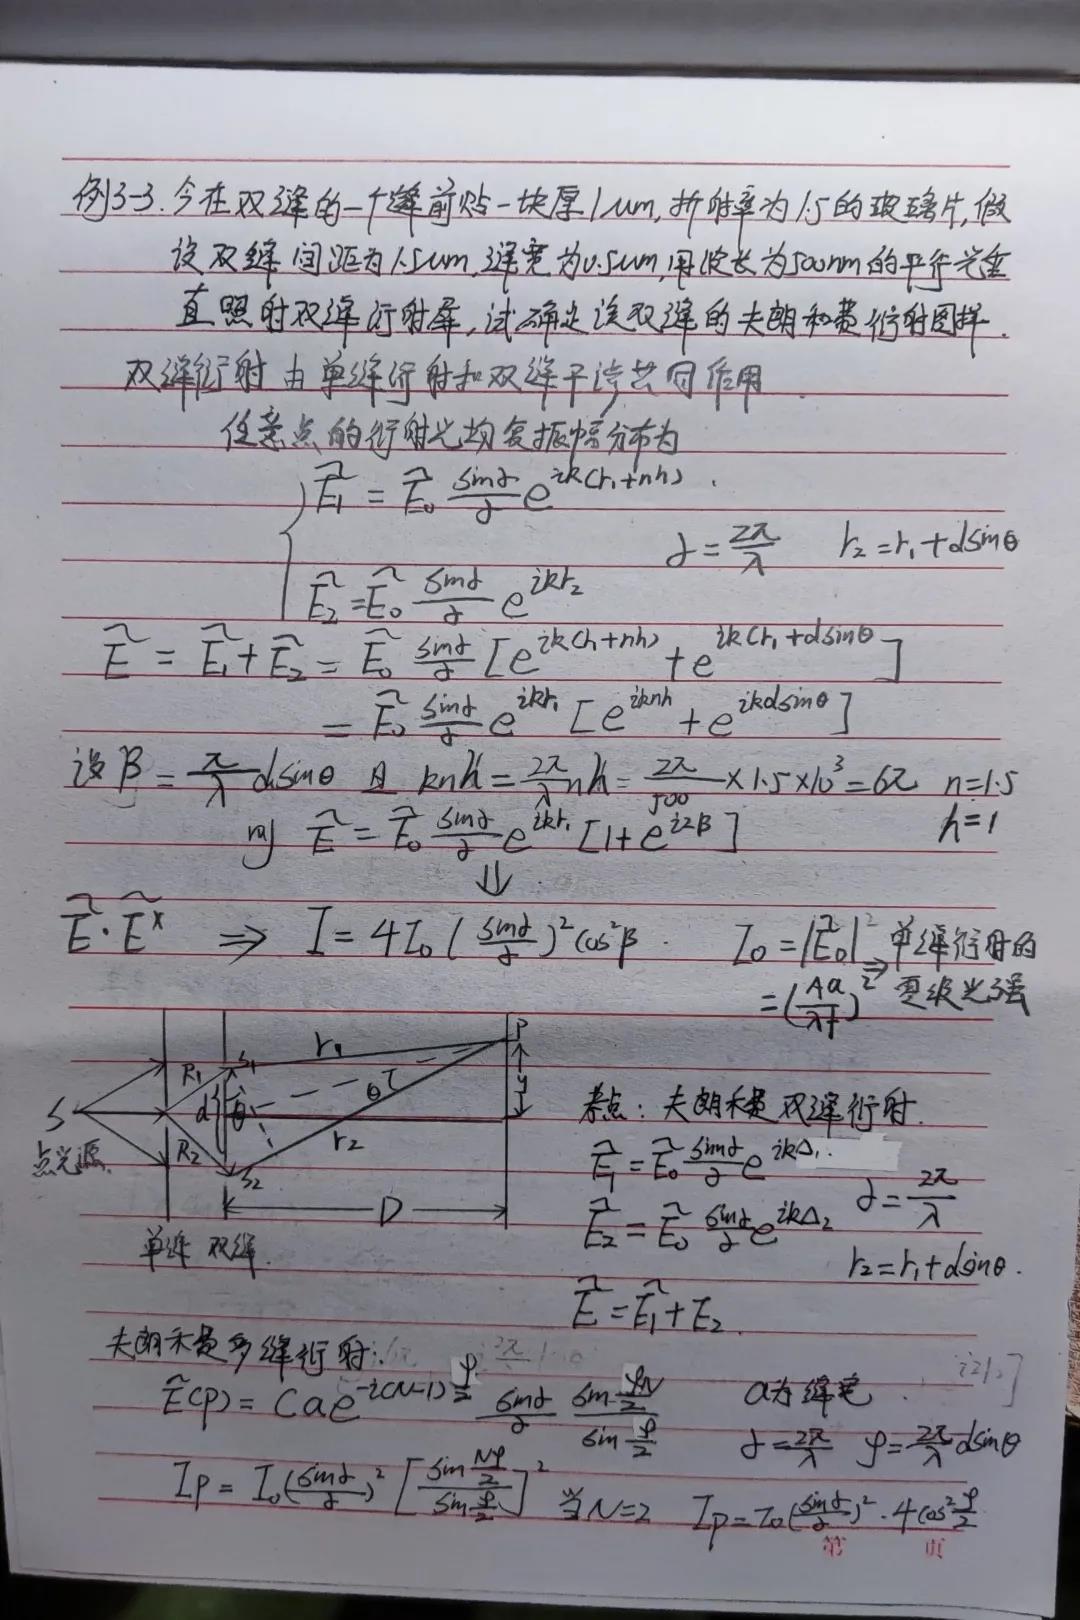 例3-3.今在双缝的一个缝前贴一块厚1um,折射率为1.5的玻璃片,假
设双缝间距为1.5um,缝宽为0.5um,用波长为500nm的平行光垂
直照射双缝衍射屏,试确定该双缝的夫朗和费衍射图样.
双缝衍射由单缝衍射和双缝干涉共同作用
任意点的衍射光均复振幅分布为
Ẽ₁ = Ẽ₀ sinα/α e^{ik(r₁+nh)}.
α = 2π/λ r₂=r₁+dsinθ
Ẽ₂=Ẽ₀ sinα/α e^{ikr₂}
Ẽ = Ẽ₁+Ẽ₂ = Ẽ₀ sinα/α [e^{ik(r₁+nh)} + e^{ik(r₁+dsinθ)}]
= Ẽ₀ sinα/α e^{ikr₁} [e^{iknh} + e^{ikdsinθ}]
设β = π/λ dsinθ 且 knh = 2π/λ nh = 2π/500 ×1.5×10³=6π n=1.5
h=1
则 Ẽ = Ẽ₀ sinα/α e^{ikr₁} [1+e^{i2β}]
⇓
Ẽ·Ẽ* ⇒ I = 4I₀(sinα/α)²cos²β. I₀ = |Ẽ₀|² ⇒ 单缝衍射的
=(Aa/λf)² 零级光强
S 点光源.
R₁ R₂ S₁ S₂ d θ r₁ r₂ θ P y D
单缝 双缝.
考点: 夫朗和费双缝衍射.
Ẽ₁=Ẽ₀ sinα/α e^{ikΔ₁}.
α = 2π/λ
Ẽ₂=Ẽ₀ sinα/α e^{ikΔ₂}
r₂=r₁+dsinθ.
Ẽ=Ẽ₁+E₂.
夫朗禾费多缝衍射:
Ẽ(p)= Cae^{-i(N-1)φ/2} sinα/α sin φN/2 / sin φ/2 a为缝宽.
α=2π/λ φ=2π/λ dsinθ
Ip = I₀(sinα/α)² [sin Nφ/2 / sin φ/2]² 当N=2 Ip=I₀(sinα/α)²·4cos²φ/2
第 页